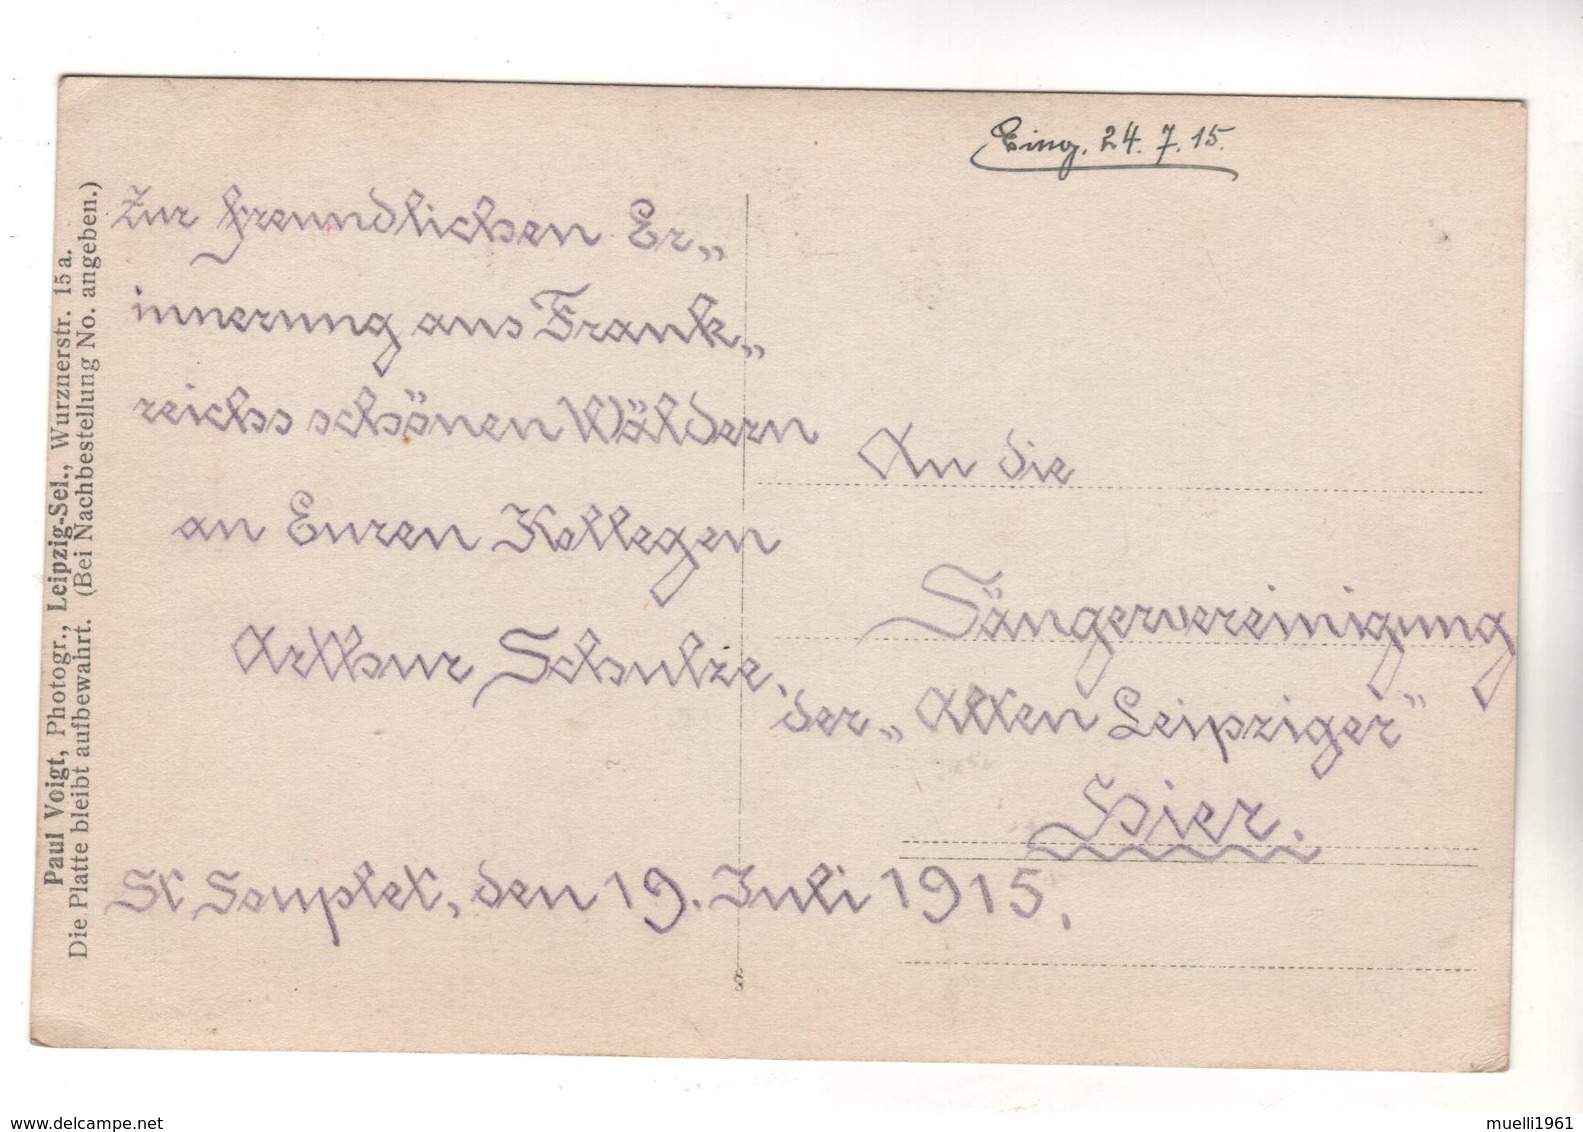 Eing. 24. 7. 15.
Zur freundlichen Er„
innerung aus Frank„
reichs schönen Wäldern
an Euren Kollegen
Arthur Schulze.
St Souplet, den 19. Juli 1915.
An die
Sängervereinigung
der „Alten Leipziger"
Hier.
Paul Voigt, Photogr., Leipzig-Sel., Wurznerstr. 15a.
Die Platte bleibt aufbewahrt. (Bei Nachbestellung No. angeben.)
www.delcampe.net
muelli1961